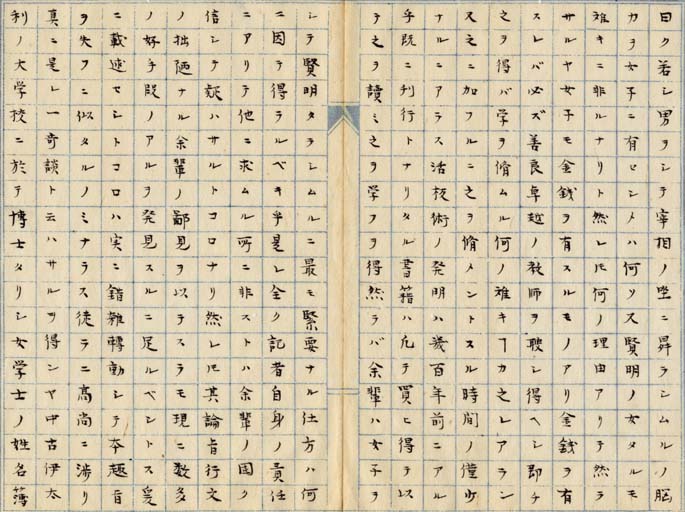 曰ク若シ男ヲシテ宰相ノ堂ニ昇ラシムルノ脳
力ヲ女子ニ有セシメハ何ソス賢明ノ女タルモ
難キニ非ルナリト然レ𪜈何ノ理由アリテ然ラ
サルヤ女子モ金銭ヲ有スルモノアリ金銭ヲ有
スレバ必ズ善良卓越ノ教師ヲ聘シ得ヘシ即チ
之ヲ得バ学ヲ脩ムル何ノ難キヿカ之レアラン
又之ニ加フルニ之ヲ脩メントスル時間ノ僅少
ナルニアラス活板術ノ発明ハ幾百年前ニアル
乎既ニ刊行トナリタル書籍ハ凢テ買ヒ得テ以
テ之ヲ讀ミ之ヲ学フヲ得然ラバ余輩ハ女子ヲ
シテ賢明タラシムルニ最モ緊要ナル仕方ハ何
ニ因テ得ラルベキ乎是レ全ク記者自身ノ責任
ニアリテ他ニ求ムル所ニ非ストハ余輩ノ固ク
信シテ疑ハサルトコロナリ然レ𪜈其論旨行文
ノ拙陋ナル余輩ノ鄙見ヲ以テスラモ現ニ数多
ノ好手段ノアルヲ発見スルニ足ルベントス爰
ニ載述セントコロハ実ニ錯雑轉動シテ本趣旨
ヲ失フニ似タルノミナラス徒ラニ高尚ニ渉リ
真ニ是レ一奇談ト云ハサルヲ得ンヤ中古伊太
利ノ大学校ニ於テ博士タリシ女学士ノ姓名簿